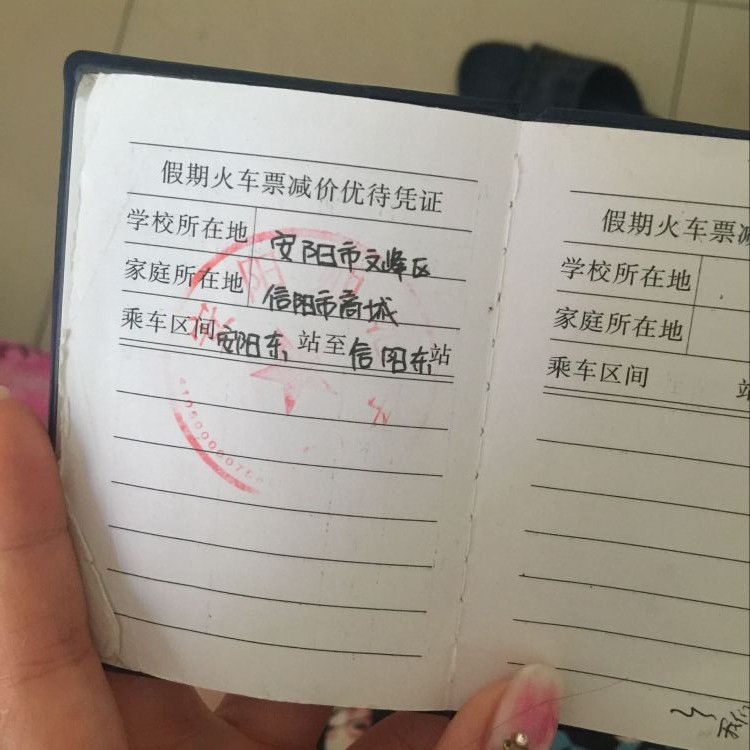 假期火车票减价优待凭证
学校所在地 安阳市文峰区
家庭所在地 信阳市商城
乘车区间 安阳东 站至 信阳东 站
假期火车票减
学校所在地
家庭所在地
乘车区间 站